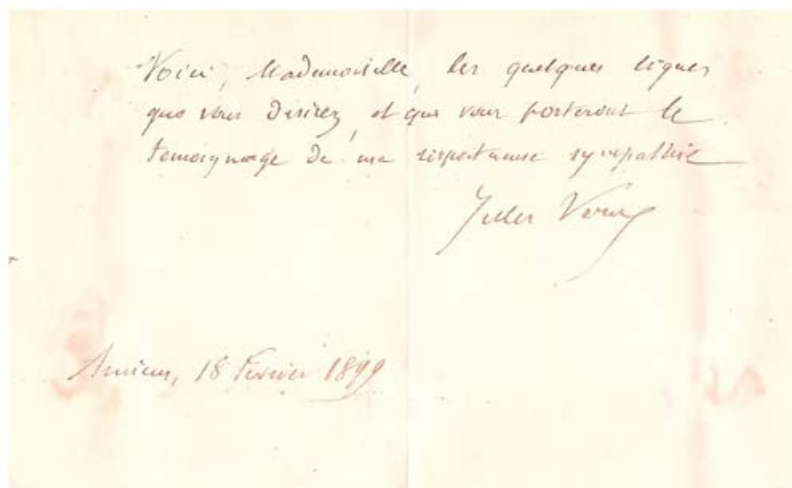 Voici, Mademoiselle, les quelques lignes
que vous desirez, et qui vous porteront le
témoignage de ma respectueuse sympathie
Jules Verne
Amiens, 18 Février 1899